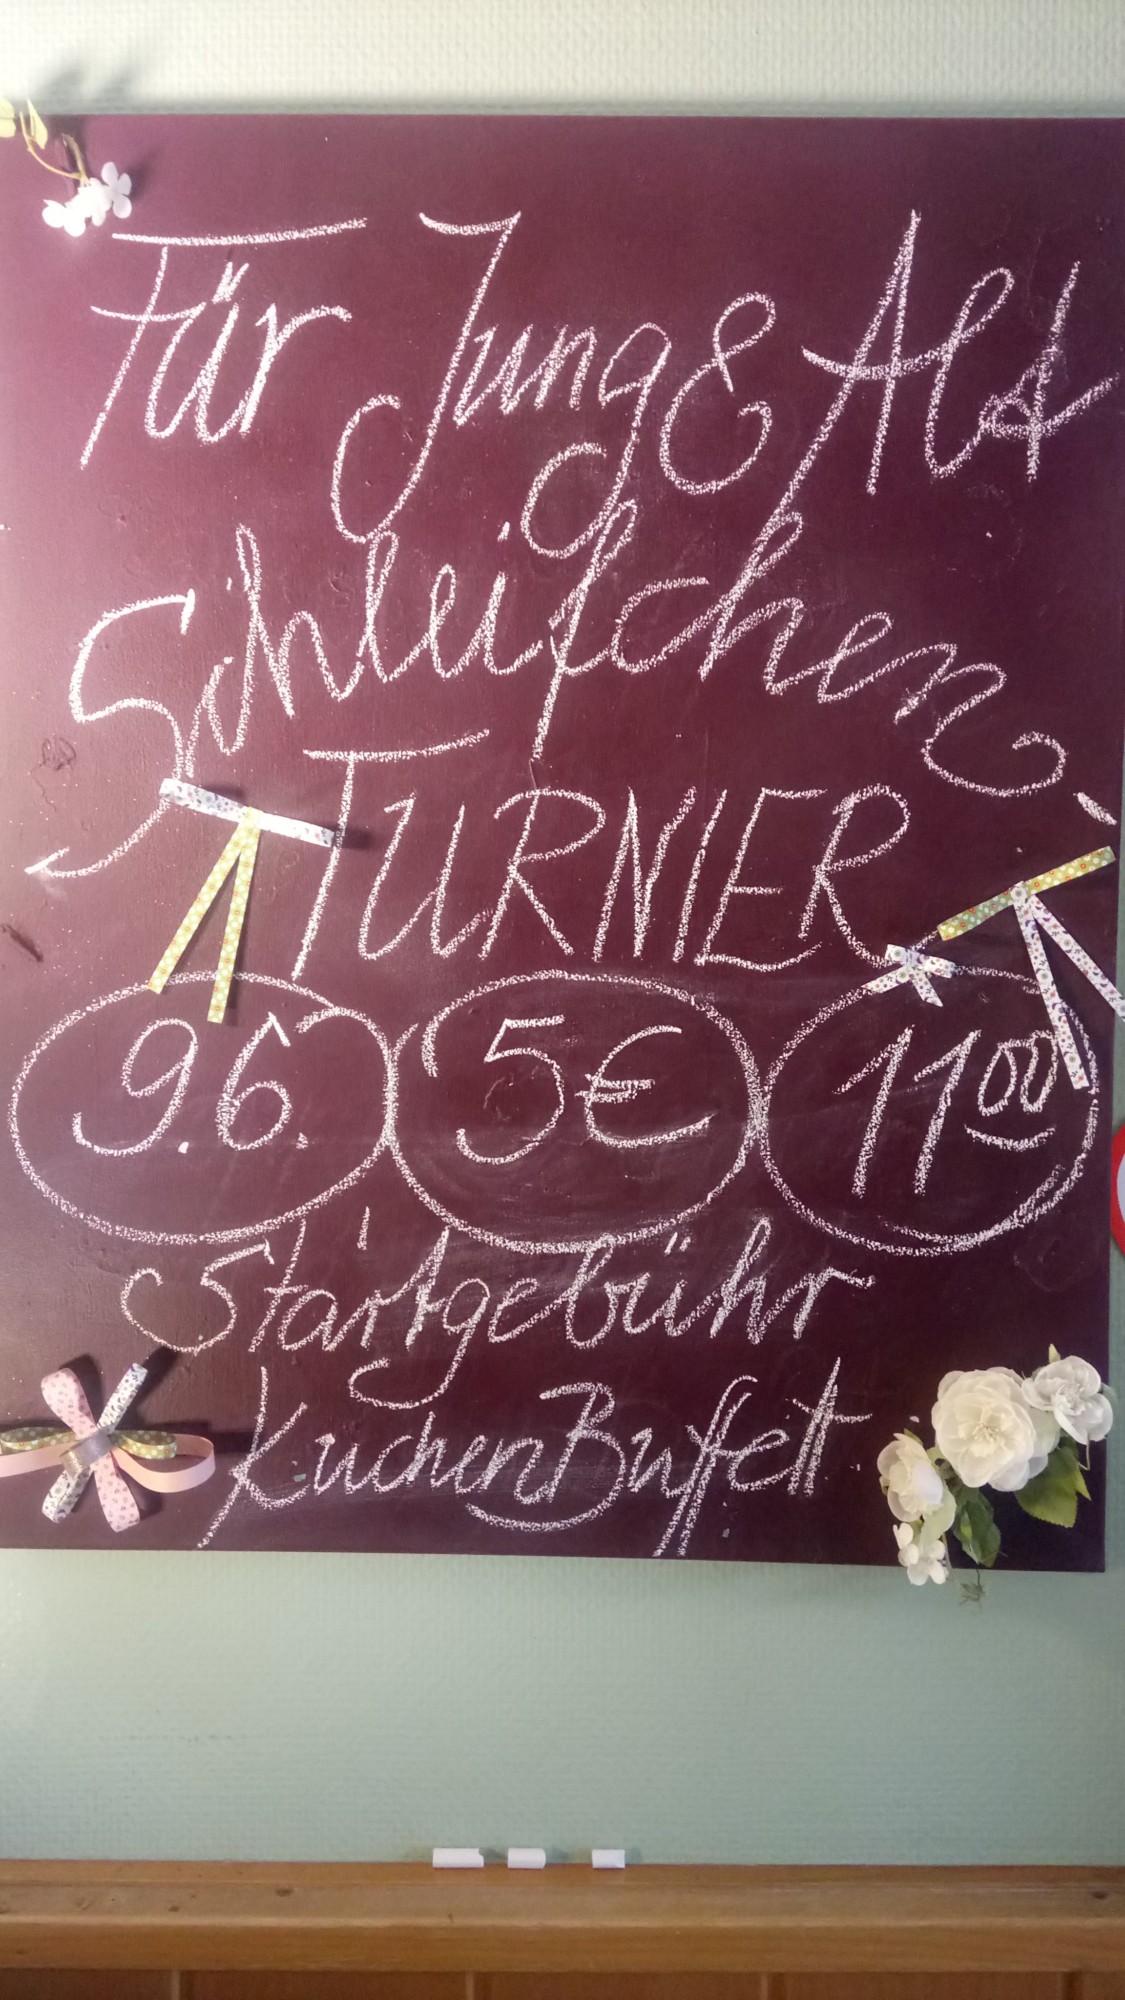 Für Jung & Alt
Schleifchen
TURNIER
9.6. 5€ 11 00
Startgebühr
KuchenBuffett